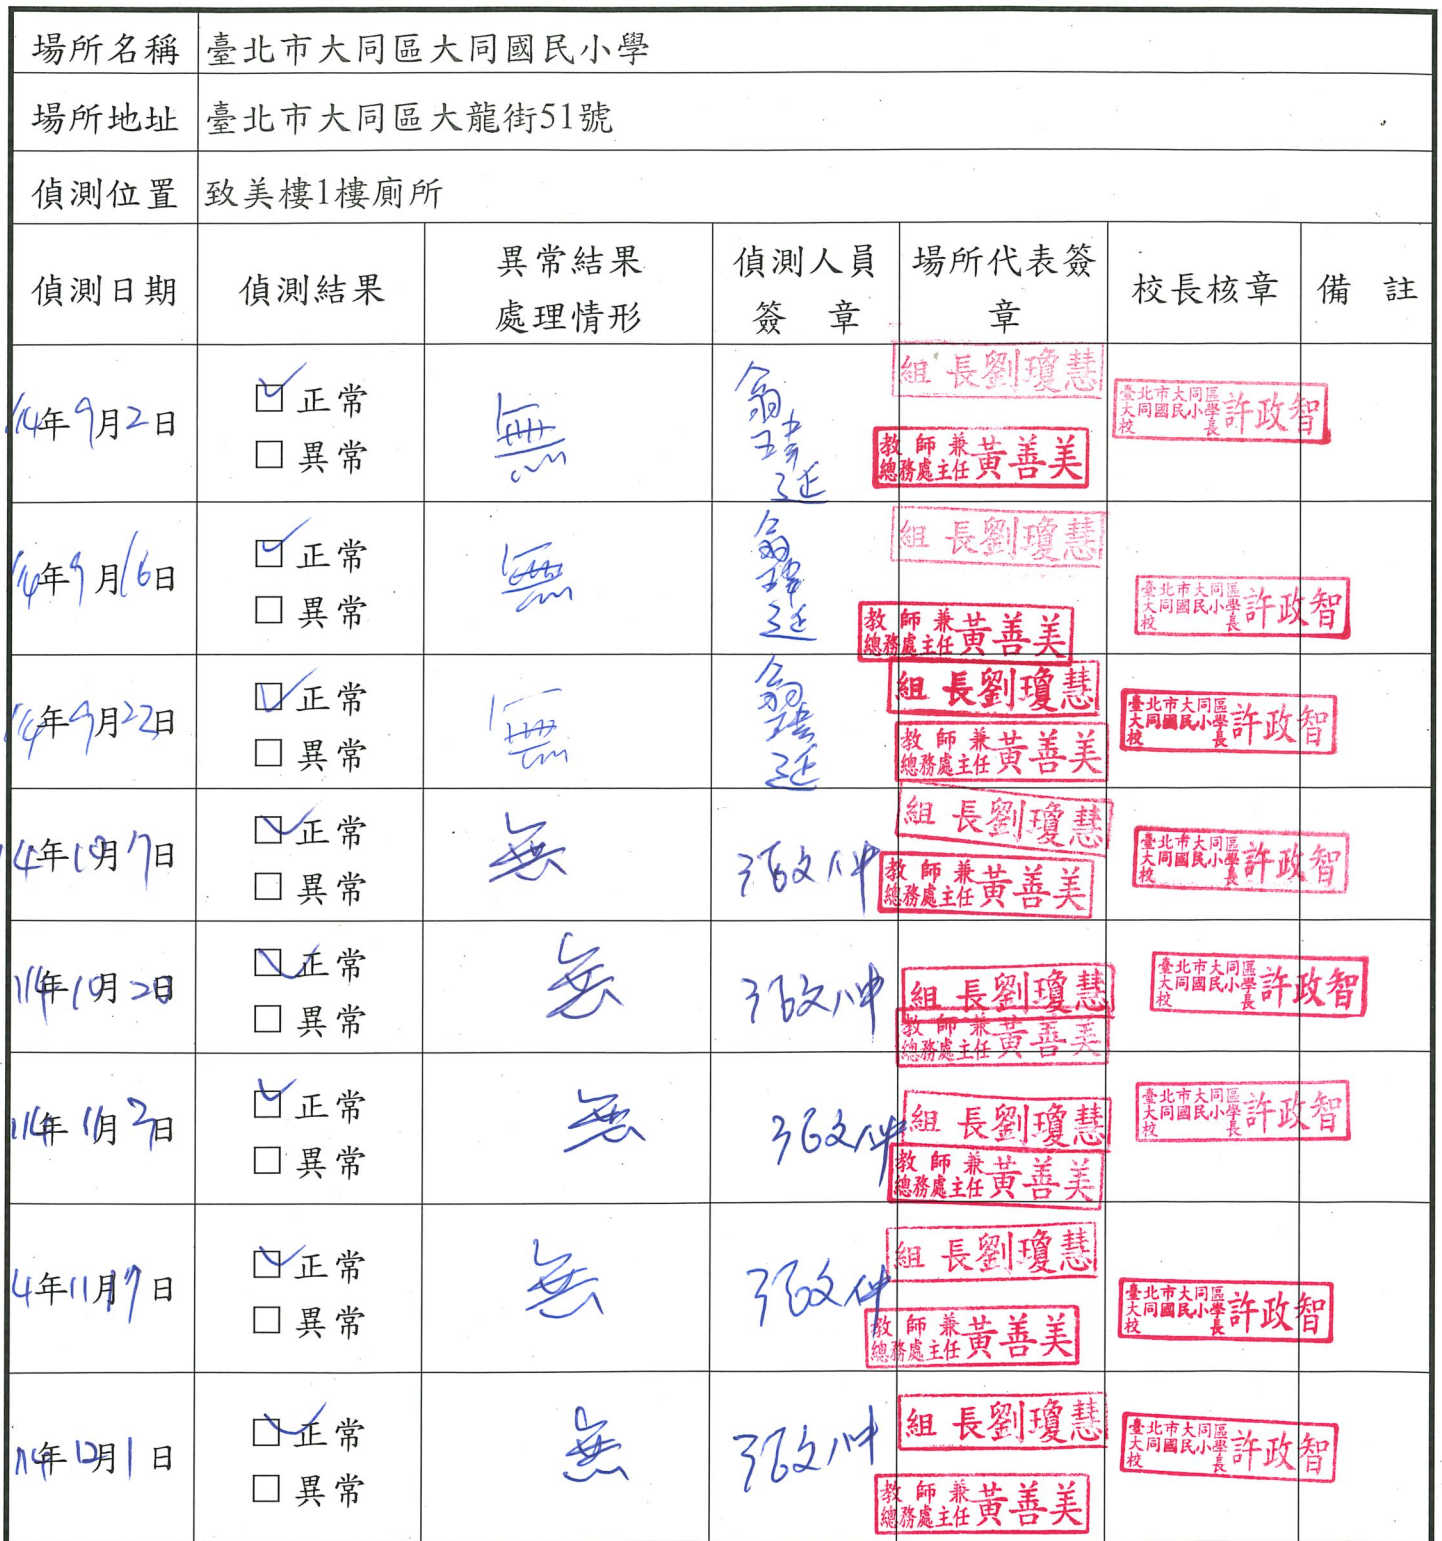 場所名稱 臺北市大同區大同國民小學
場所地址 臺北市大同區大龍街51號
偵測位置 致美樓1樓廁所
偵測日期 偵測結果 異常結果處理情形 偵測人員簽章 場所代表簽章 校長核章 備註
114年9月2日 正常 異常 無 組長劉瓊慧
教師兼總務處主任黃善美 臺北市大同區大同國民小學校長許政智
114年9月16日 正常 異常 無 組長劉瓊慧
教師兼總務處主任黃善美 臺北市大同區大同國民小學校長許政智
114年9月22日 正常 異常 無 組長劉瓊慧
教師兼總務處主任黃善美 臺北市大同區大同國民小學校長許政智
14年10月7日 正常 異常 無 張文仲 組長劉瓊慧
教師兼總務處主任黃善美 臺北市大同區大同國民小學校長許政智
114年10月20日 正常 異常 無 張文仲 組長劉瓊慧
教師兼總務處主任黃善美 臺北市大同區大同國民小學校長許政智
114年11月 日 正常 異常 無 張文仲 組長劉瓊慧
教師兼總務處主任黃善美 臺北市大同區大同國民小學校長許政智
4年11月 日 正常 異常 無 張文仲 組長劉瓊慧
教師兼總務處主任黃善美 臺北市大同區大同國民小學校長許政智
114年12月1日 正常 異常 無 張文仲 組長劉瓊慧
教師兼總務處主任黃善美 臺北市大同區大同國民小學校長許政智